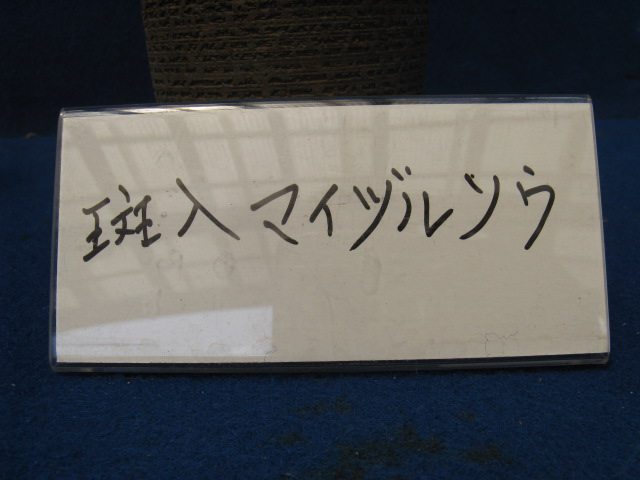 斑入マイヅルソウ